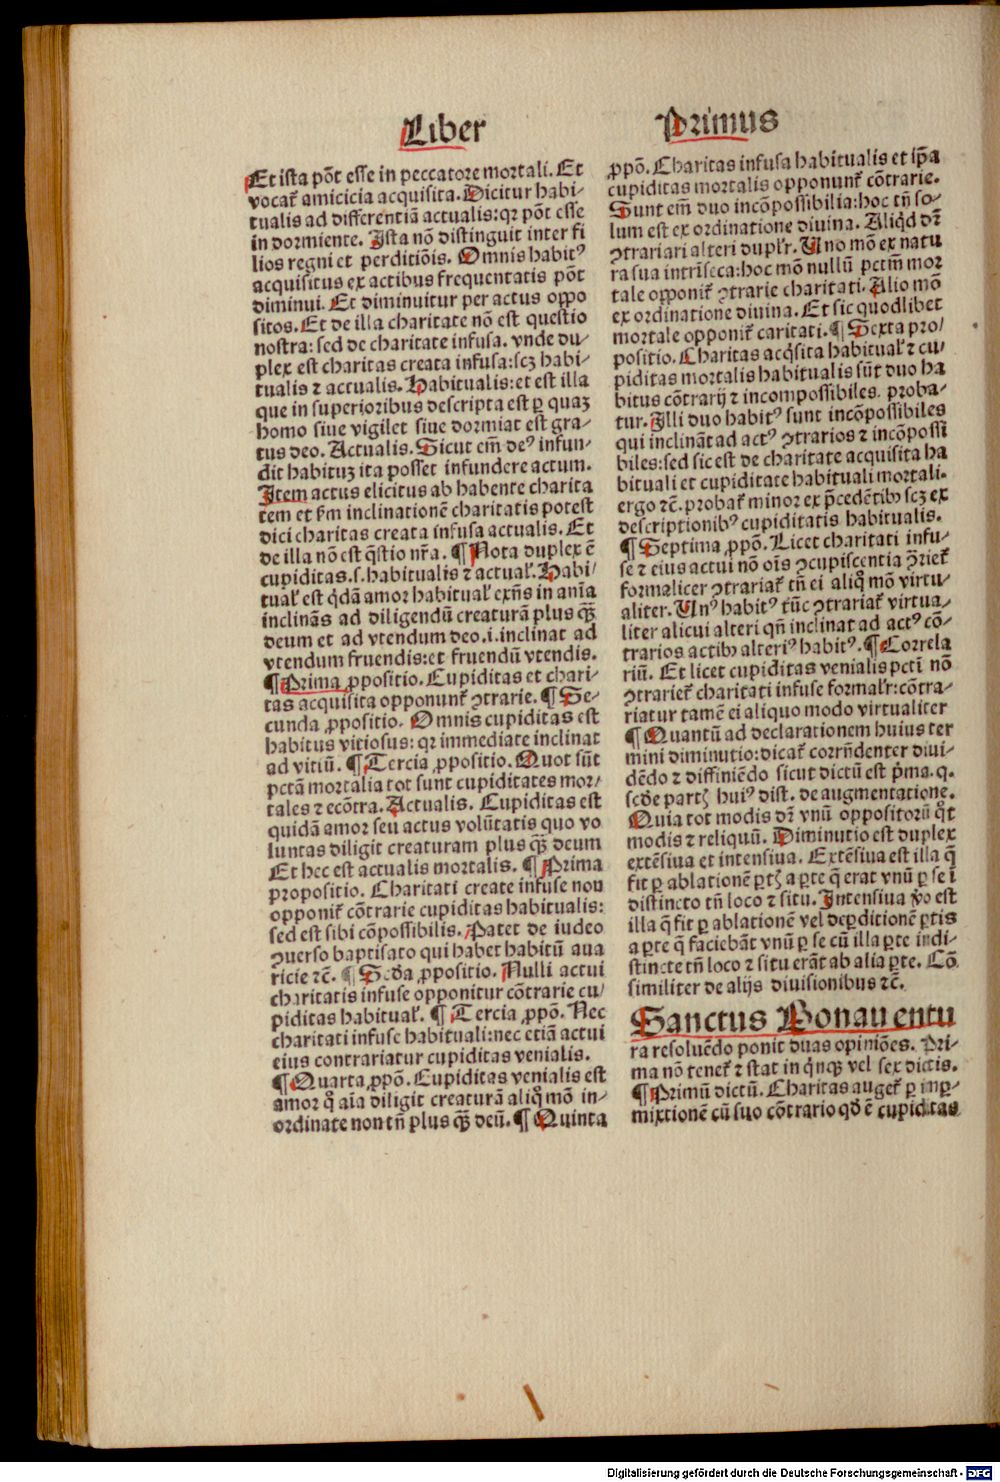 Liber
Primus
Et ista põt esse in peccatore mortali. Et
vocat̃ amicicia acquisita. Dicitur habi-
tualis ad differentiã actualis: qꝛ põt esse
in dormiente. Ista nõ distinguit inter fi
lios regni et perditiõis. Omnis habitꝰ
acquisitus ex actibus frequentatis põt
diminui. Et diminuitur per actus oppo
sitos. Et de illa charitate nõ est questio
nostra: sed de charitate infusa. vnde du-
plex est charitas creata infusa: scꝫ habi-
tualis ⁊ actualis. Habitualis: et est illa
que in superioribus descripta est ꝑ quaꝫ
homo siue vigilet siue dormiat est gra-
tus deo. Actualis. Sicut em̃ deꝰ infun-
dit habituꝫ ita posset infundere actum.
Item actus elicitus ab habente charita
tem et ẜm inclinationẽ charitatis potest
dici charitas creata infusa actualis. Et
de illa nõ est q̃stio nr̃a. ¶ Nota duplex ẽ
cupiditas .s. habitualis ⁊ actual̃. Habi-
tual̃ est q̇dã amor habitual̃ exñs in aĩa
inclinãs ad diligendũ creaturã plus qꝫ̃
deum et ad vtendum deo .i. inclinat ad
vtendum fruendis: et fruendũ vtendis.
¶ Prima ꝓpositio. Cupiditas et chari-
tas acquisita opponunt̃ ꝯtrarie. ¶ Se-
cunda ꝓpositio. Omnis cupiditas est
habitus vitiosus: qꝛ immediate inclinat
ad vitiũ. ¶ Tercia ꝓpositio. Quot sũt
pctã mortalia tot sunt cupiditates mor-
tales ⁊ ecõtra. Actualis. Cupiditas est
quidã amor seu actus volũtatis quo vo
luntas diligit creaturam plus qꝫ̃ deum
Et hec est actualis mortalis. ¶ Prima
propositio. Charitati create infuse non
opponit̃ cõtrarie cupiditas habitualis:
sed est sibi cõpossibilis. Patet de iudeo
ꝯuerso baptisato qui habet habitũ aua
ricie ⁊c̃. ¶ Scḋa ꝓpositio. Nulli actui
charitatis infuse opponitur cõtrarie cu-
piditas habitual̃. ¶ Tercia ꝓpõ. Nec
charitati infuse habituali: nec etiã actui
eius contrariatur cupiditas venialis.
¶ Quarta ꝓpõ. Cupiditas venialis est
amor q̊ aĩa diligit creaturã aliq̊ mõ in-
ordinate non tñ plus qꝫ̃ deũ. ¶ Quinta
ꝓpõ. Charitas infusa habitualis et ip̃a
cupiditas mortalis opponunt̃ cõtrarie.
Sunt em̃ duo incõpossibilia: hoc tñ so-
lum est ex ordinatione diuina. Aliq̇d dr̃
ꝯtrariari alteri duplr̃. Uno mõ ex natu
ra sua intrĩseca: hoc mõ nullũ pctm̃ mor
tale opponit̃ ꝯtrarie charitati. Alio mõ
ex ordinatione diuina. Et sic quodlibet
mortale opponit̃ caritati. ¶ Sexta pro-
positio. Charitas acq̇sita habitual̃ ⁊ cu-
piditas mortalis habitualis sũt duo ha
bitus cõtrarij ⁊ incompossibiles. proba-
tur. Illi duo habitꝰ sunt incõpossibiles
qui inclinãt ad actꝰ ꝯtrarios ⁊ incõpossi
biles: sed sic est de charitate acquisita ha
bituali et cupiditate habituali mortali.
ergo ⁊c̃. probat̃ minor ex p̃cedẽtibꝰ scꝫ ex
descriptionibꝰ cupiditatis habitualis.
¶ Septima ꝓpõ. Licet charitati infu-
se ⁊ eius actui nõ oĩs ꝯcupiscentia ꝯ̃riet̃
formaliter ꝯtrariat̃ tñ ei aliq̊ mõ virtu-
aliter. Unꝰ habitꝰ tũc ꝯtrariat̃ virtua-
liter alicui alteri qñ inclinat ad actꝰ cõ-
trarios actibꝰ alteriꝰ habitꝰ. ¶ Correla
riũ. Et licet cupiditas venialis pctĩ nõ
ꝯtrariet̃ charitati infuse formalr̃: cõtra-
riatur tamẽ ei aliquo modo virtualiter
¶ Quantũ ad declarationem huius ter
mini diminutio: dicat̃ corrñdenter diui-
dẽdo ⁊ diffiniẽdo sicut dictũ est p̃ma. q.
scḋe partꝭ huiꝰ dist. de augmentatione.
Quia tot modis dr̃ vnũ oppositorũ q̊t
modis ⁊ reliquũ. Diminutio est duplex
extẽsiua et intensiua. Extẽsiua est illa q̃
fit ꝑ ablationẽ ꝑtꝭ a ꝑte q̃ erat vnũ ꝑ se ĩ
distincto tñ loco ⁊ situ. Intensiua v̊o est
illa q̃ fit ꝑ ablationẽ vel deꝑditionẽ ꝑtis
a ꝑte q̃ faciebãt vnũ ꝑ se cũ illa ꝑte indi-
stincte tñ loco ⁊ situ erãt ab alia ꝑte. Cõ
similiter de alijs diuisionibus ⁊c̃.
Sanctus Bonauentu
ra resoluẽdo ponit duas opiniões. Pri-
ma nõ tenet̃ ⁊ stat in q̇nqꝫ vel sex dictis.
¶ Primũ dictũ. Charitas auget̃ ꝑ inꝑ-
mixtionẽ cũ suo cõtrario qḋ ẽ cupiditas
Digitalisierung gefördert durch die Deutsche Forschungsgemeinschaft - DFG